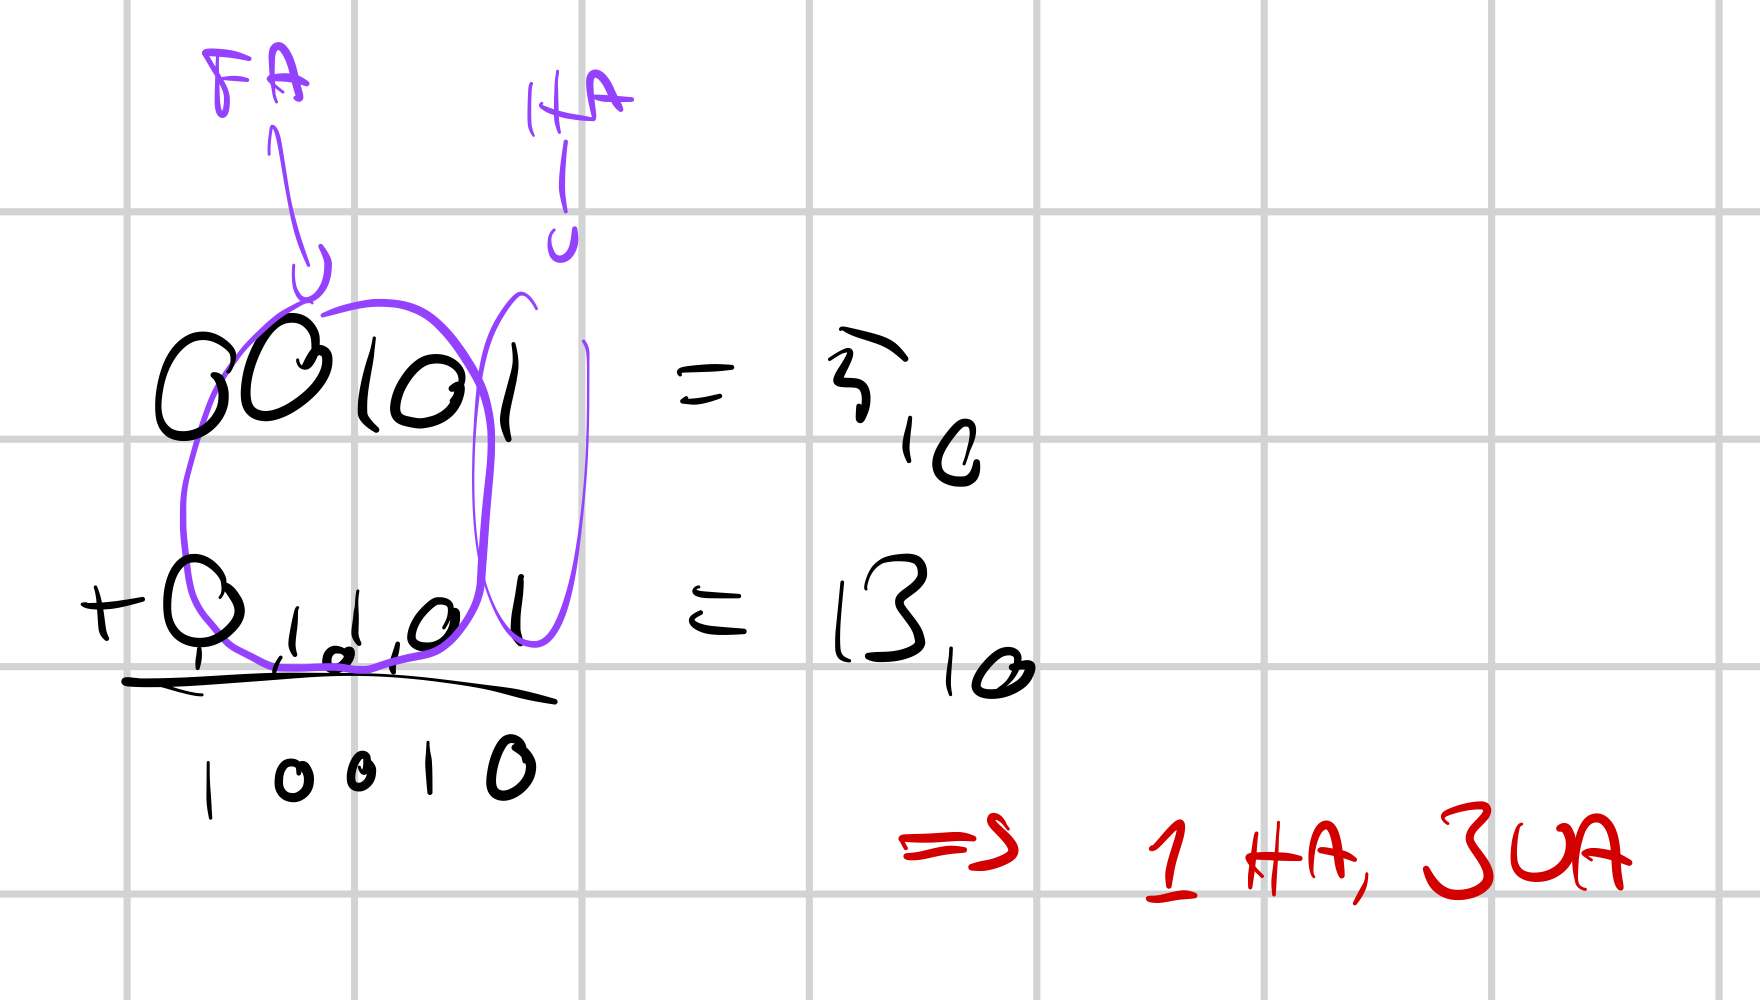 FA HA
00101 = 5₁₀
+ 01101 = 13₁₀
1 1 0 1
10010
=> 1 HA, 3 VA